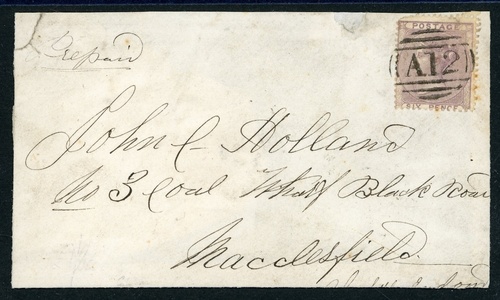 Prepaid
POSTAGE
A12
SIX PENCE
John C Holland
No 3 Coal Wharf Black Road
Macclesfield